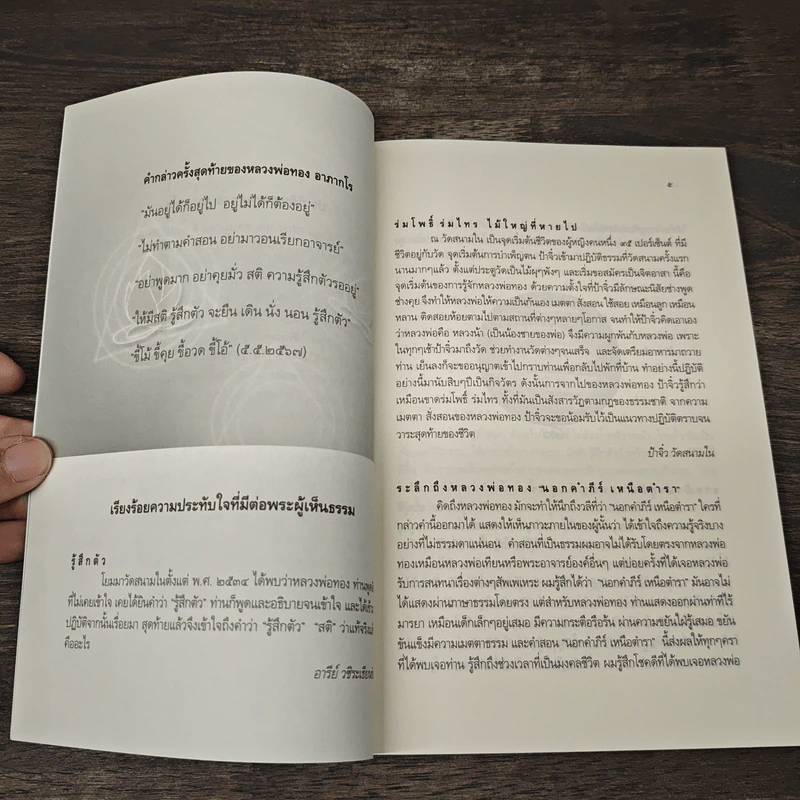 คำกล่าวครั้งสุดท้ายของหลวงพ่อทอง อาภากโร
"มันอยู่ได้ก็อยู่ไป อยู่ไม่ได้ก็ต้องอยู่"
"ไม่ทำตามคำสอน อย่ามาวอนเรียกอาจารย์"
"อย่าพูดมาก อย่าคุยมั่ว สติ ความรู้สึกตัวรออยู่"
"ให้มีสติ รู้สึกตัว จะยืน เดิน นั่ง นอน รู้สึกตัว"
"ขี้โม้ ขี้คุย ขี้อวด ขี้โอ้" (๕.๕.๒๕๖๗)
เรียงร้อยความประทับใจที่มีต่อพระผู้เห็นธรรม
รู้สึกตัว
โยมมาวัดสนามในตั้งแต่ พ.ศ. ๒๕๓๔ ได้พบว่าหลวงพ่อทอง ท่านพูด
ที่ไม่เคยเข้าใจ เคยได้ยินคำว่า "รู้สึกตัว" ท่านก็พูดและอธิบายจนเข้าใจ และได้เข้า
ปฏิบัติจากนั้นเรื่อยมา สุดท้ายแล้วจึงเข้าใจถึงคำว่า "รู้สึกตัว" "สติ" ว่าแท้จริงแล้
คืออะไร
อารีย์
๕
ร่มโพธิ์ ร่มไทร ไม้ใหญ่ที่หายไป
ณ วัดสนามใน เป็นจุดเริ่มต้นชีวิตของผู้หญิงคนหนึ่ง ๙๕ เปอร์เซ็นต์ ที่มี
ชีวิตอยู่กับวัด จุดเริ่มต้นการบำเพ็ญตน ป้าจิ๋วเข้ามาปฏิบัติธรรมที่วัดสนามครั้งแรก
นานมากๆแล้ว ตั้งแต่ประตูวัดเป็นไม้ผุๆพังๆ และเริ่มขอสมัครเป็นจิตอาสา นี้คือ
จุดเริ่มต้นของการรู้จักหลวงพ่อทอง ด้วยความตั้งใจที่ป้าจิ๋วมีลักษณะนิสัยช่างพูด
ช่างคุย จึงทำให้หลวงพ่อให้ความเป็นกันเอง เมตตา สั่งสอน ใช้สอย เหมือนลูก เหมือน
หลาน ติดสอยห้อยตามไปตามสถานที่ต่างๆหลายๆโอกาส จนทำให้ป้าจิ๋วคิดเอาเอง
ว่าหลวงพ่อคือ หลวงน้า (เป็นน้องชายของพ่อ) จึงมีความผูกพันกับหลวงพ่อ เพราะ
ในทุกๆเช้าป้าจิ๋วมาถึงวัด ช่วยทำงานวัดต่างๆจนเสร็จ และจัดเตรียมอาหารมาถวาย
ท่าน เย็นลงก็จะขออนุญาตเข้าไปกราบท่านเพื่อกลับไปพักที่บ้าน ทำอย่างนี้ปฏิบัติ
อย่างนี้มานับสิบๆปีเป็นกิจวัตร ดังนั้นการจากไปของหลวงพ่อทอง ป้าจิ๋วรู้สึกว่า
เหมือนขาดร่มโพธิ์ ร่มไทร ทั้งที่มันเป็นสังสารวัฏตามกฎของธรรมชาติ จากความ
เมตตา สั่งสอนของหลวงพ่อทอง ป้าจิ๋วจะขอน้อมรับไว้เป็นแนวทางปฏิบัติตราบจน
วาระสุดท้ายของชีวิต
ป้าจิ๋ว วัดสนามใน
ระลึกถึงหลวงพ่อทอง "นอกคำภีร์ เหนือตำรา"
คิดถึงหลวงพ่อทอง มักจะทำให้นึกถึงวลีที่ว่า "นอกคำภีร์ เหนือตำรา" ใครที่
กล่าวคำนี้ออกมาได้ แสดงให้เห็นภาวะภายในของผู้นั้นว่า ได้เข้าใจถึงความรู้จริงบาง
อย่างที่ไม่ธรรมดาแน่นอน คำสอนที่เป็นธรรมผมอาจไม่ได้รับโดยตรงจากหลวงพ่อ
ทองเหมือนหลวงพ่อเทียนหรือพระอาจารย์องค์อื่นๆ แต่บ่อยครั้งที่ได้เจอหลวงพ่อ
รับการสนทนาเรื่องต่างๆสัพเพเหระ ผมรู้สึกได้ว่า "นอกคำภีร์ เหนือตำรา" มันอาจไม่
ได้แสดงผ่านภาษาธรรมโดยตรง แต่สำหรับหลวงพ่อทอง ท่านแสดงออกผ่านท่าทีไร้
มารยา เหมือนเด็กเล็กๆอยู่เสมอ มีความกระตือรือร้น ผ่านความขยันใฝ่รู้เสมอ ขยัน
ขันแข็งมีความเมตตาธรรม และคำสอน "นอกคำภีร์ เหนือตำรา" นี้ส่งผลให้ทุกๆครา
ที่ได้พบเจอท่าน รู้สึกถึงช่วงเวลาที่เป็นมงคลชีวิต ผมรู้สึกโชคดีที่ได้พบเจอหลวงพ่อ